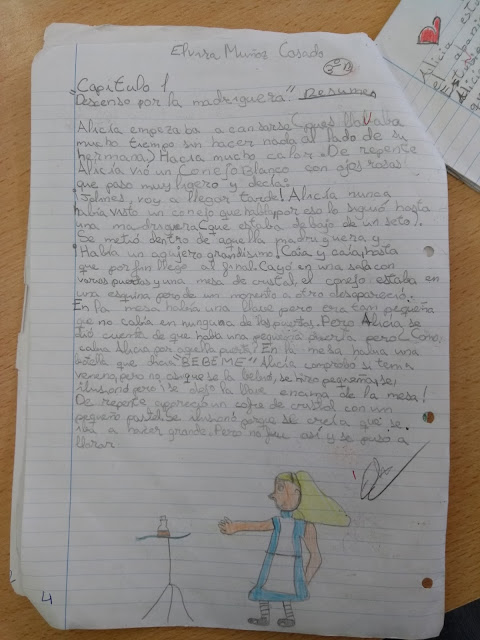 Elvira Muñoz Casado
"Capítulo 1
Descenso por la madriguera." Resumen
Alicia empezaba a cansarse (pues llevaba
mucho tiempo sin hacer nada al lado de su
hermana) Hacia mucho calor. De repente
Alicia vio un Conejo Blanco con ojos rosas
que paso muy ligero y decía:
voy a llegar tarde! Alicia nunca
había visto un conejo que hablara por eso lo siguió hasta
una madriguera (que estaba debajo de un seto).
Se metió dentro de aquella madriguera y
Había un agujero grandisimo. Caía y caía, hasta
que por fin llego al final. Cayó en una sala con
varias puertas y una mesa de cristal, el conejo estaba en
una esquina pero de un momento a otro desapareció.
En la mesa había una llave pero era tan pequeña
que no cabía en ninguna de las puertas. Pero Alicia se
dió cuenta de que había una pequeña puerta pero Como
cabria Alicia por aquella puerta? En la mesa había una
botella que decía "BEBEME" Alicia comprobó si tenía
veneno, pero no así que se la bebió, se hizo pequeña, se
ilusionó pero ¡se dejó la llave encima de la mesa!
De repente apareció un cofre de cristal con un
pequeño pastel. Se ilusionó porque se creía que se
iba a hacer grande. Pero no fue así y se puso a
llorar.
4
Alicia